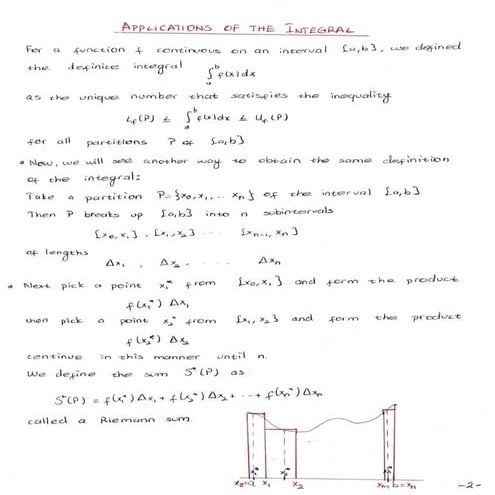 APPLICATIONS OF THE INTEGRAL
For a function f continuous on an interval [a,b], we defined
the definite integral ∫ₐᵇ f(x)dx
as the unique number that satisfies the inequality
L_f(P) ≤ ∫ₐᵇ f(x)dx ≤ U_f(P)
for all partitions P of [a,b].
• Now, we will see another way to obtain the same definition
of the integral:
Take a partition P={x₀,x₁,.. xₙ} of the interval [a,b]
Then P breaks up [a,b] into n subintervals
[x₀,x₁], [x₁,x₂] ... [xₙ₋₁,xₙ]
of lengths
Δx₁ , Δx₂ , ... Δxₙ
• Next pick a point x₁* from [x₀,x₁] and form the product
f(x₁*) Δx₁
then pick a point x₂* from [x₁,x₂] and form the product
f(x₂*) Δx₂
continue in this manner until n.
We define the sum S*(P) as:
S*(P) = f(x₁*)Δx₁ + f(x₂*)Δx₂ + ... + f(xₙ*)Δxₙ
called a Riemann sum.
x₀=a x₁ x₂ xₙ₋₁ b=xₙ
-2-